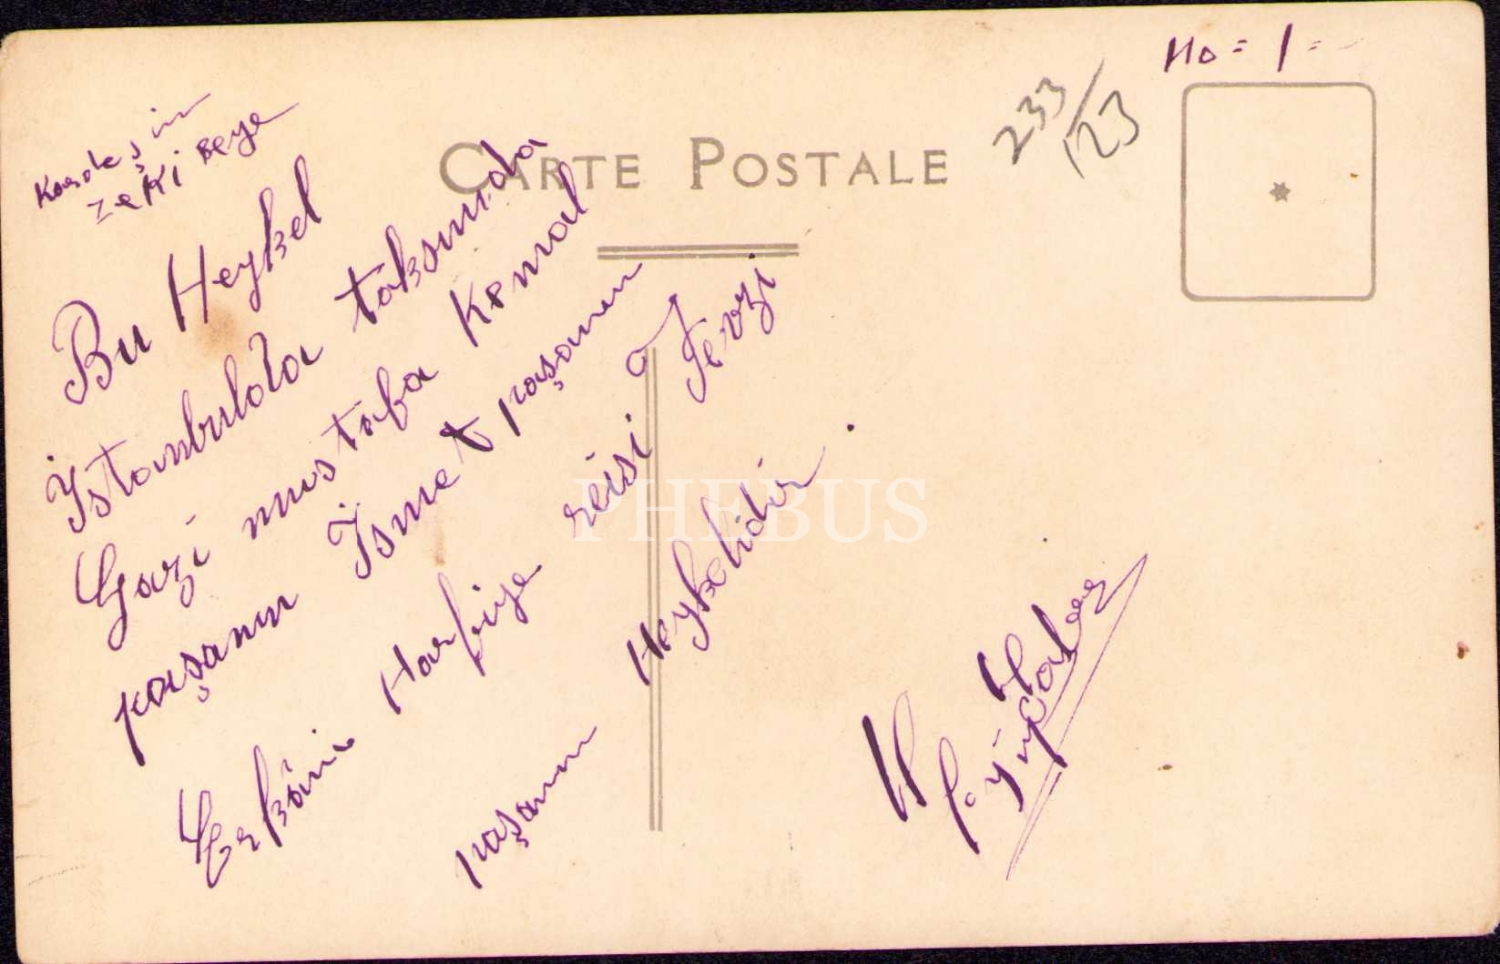 No = 1 =
233/123
CARTE POSTALE
Kardeşin
Zeki Beye
Bu Heykel
İstanbulda taksimda
Gazi mustafa Kemal
paşanın İsmet paşanın
Erkâni Harbiye reisi Fevzi
paşanın Heykelidir.
PHEBUS